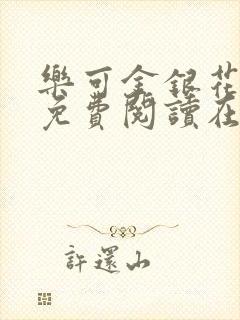 樂可金銀花
免費閱讀在
許還山